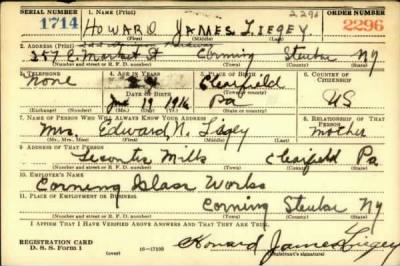 SERIAL NUMBER 1. NAME (Print) 2296 ORDER NUMBER
1714 HOWARD JAMES LIEGEY. 2296
(First) (Middle) (Last)
2. ADDRESS (Print)
257 E. Market St Corning Steuben NY
(Number and street or R. F. D. number) (Town) (County) (State)
3. TELEPHONE 4. AGE IN YEARS 5. PLACE OF BIRTH 6. COUNTRY OF CITIZENSHIP
None Clearfield
DATE OF BIRTH (Town or county)
19 1916 Pa US
(Exchange) (Number) (Mo.) (Day) (Yr.) (State or country)
7. NAME OF PERSON WHO WILL ALWAYS KNOW YOUR ADDRESS 8. RELATIONSHIP OF THAT PERSON
Mrs. Edward N. Liegey mother
(Mr., Mrs., Miss) (First) (Middle) (Last)
9. ADDRESS OF THAT PERSON
Lecontes Mills Clearfield Pa
(Number and street or R. F. D. number) (Town) (County) (State)
10. EMPLOYER'S NAME
Corning Glass Works
11. PLACE OF EMPLOYMENT OR BUSINESS
Corning Steuben NY
(Number and street or R. F. D. number) (Town) (County) (State)
I AFFIRM THAT I HAVE VERIFIED ABOVE ANSWERS AND THAT THEY ARE TRUE.
REGISTRATION CARD
D. S. S. Form 1 (over) 16—17105 Howard James Liegey
(Registrant's signature)